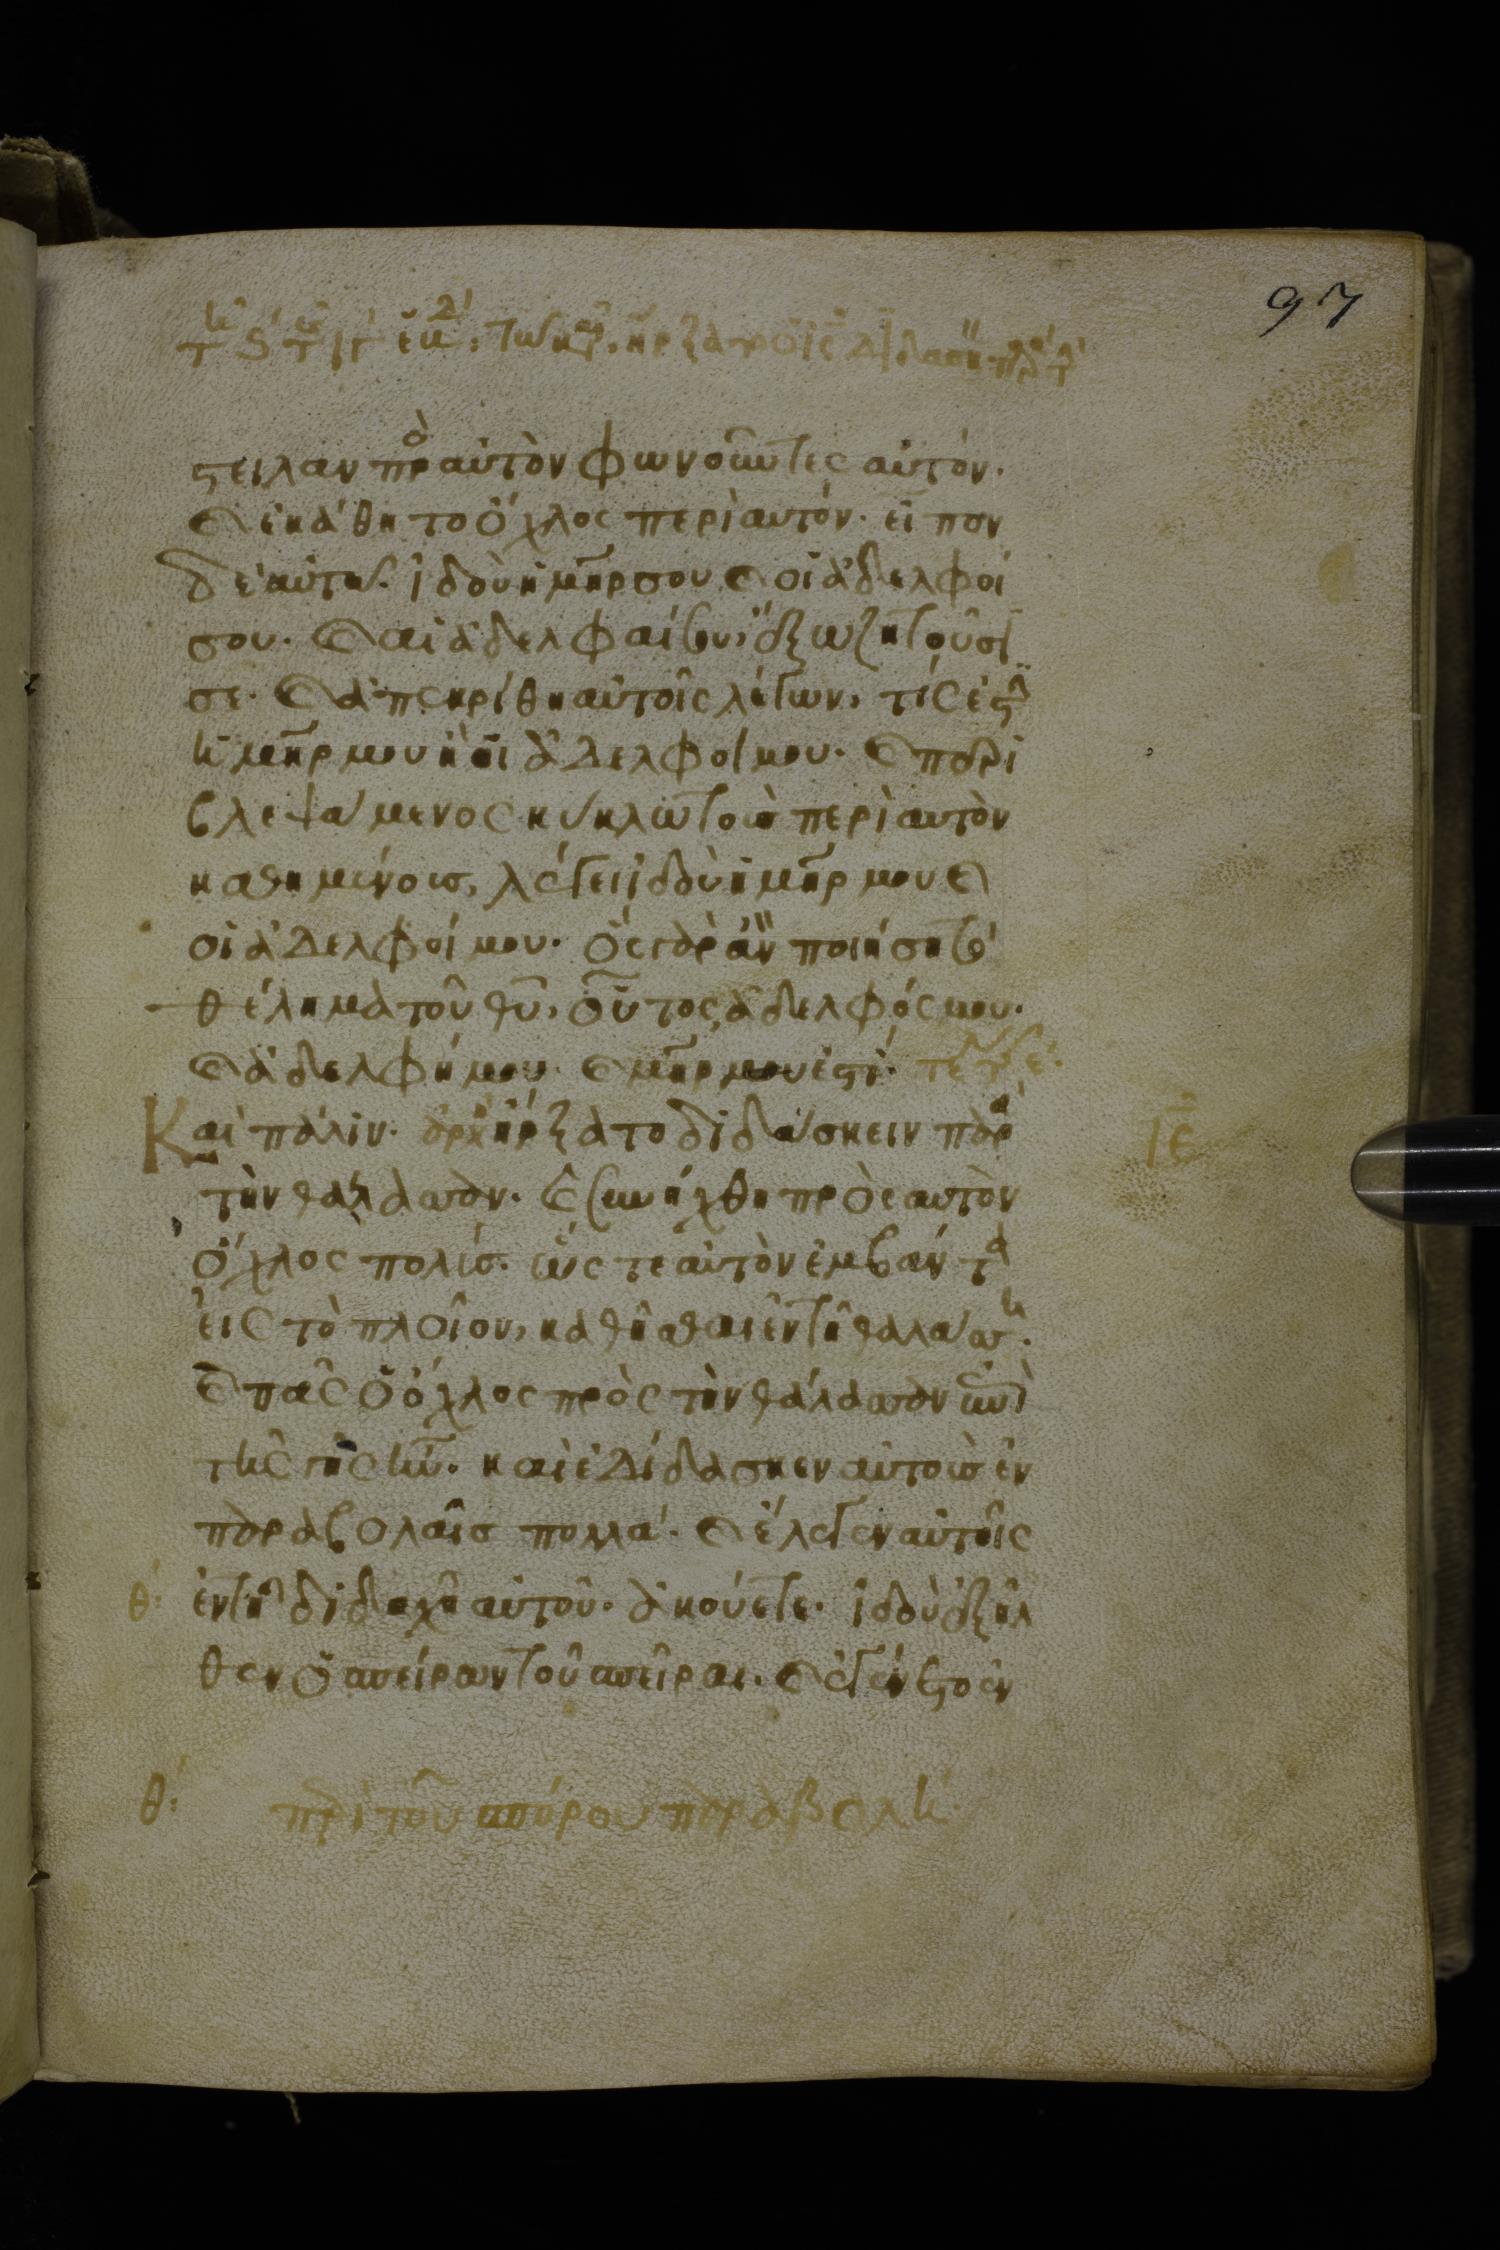 97
στειλαν πρ ὸ αὐτὸν φωνοῦντες αὐτόν.
κ ἐκάθητο ὄχλος περὶ αὐτόν. εἶπον
δὲ αὐτῶ. ἰδοὺ ἡ μηρ σου κ οἱ ἀδελφοί
σου. κ αἱ ἀδελφαί σου, ἔξω ζητοῦσί
σε. κ ἀπεκρίθη αὐτοῖς λέγων, τίς ἐστ
ἡ μηρ μου ἢ οἱ ἀδελφοί μου. κ περι
βλεψάμενος κύκλω τοὺς περὶ αὐτὸν
καθημένους, λέγει ἰδοὺ ἡ μηρ μου κ
οἱ ἀδελφοί μου. ὃς γὰρ ἂν ποιήση τὸ
θέλημα τοῦ θυ, οὗτος ἀδελφός μου.
κ ἀδελφή μου κ μηρ μου ἐστί. τε
Καὶ πάλιν. ἀρχ ἤρξατο διδάσκειν παρ
τὴν θάλασσαν. κ συνήχθη πρὸς αυτὸν
ὄχλος πολύς. ὥστε αὐτὸν ἐμβάντα
εἰς τὸ πλοῖον, καθῆσθαι ἐν τῆ θαλάσση.
κ πᾶς ὁ ὄχλος πρὸς τὴν θάλασσαν ἐπὶ
τῆς γῆς ἦν. καὶ ἐδίδασκεν αὐτοὺς ἐν
παραβολαῖς πολλά. κ ἔλεγεν αὐτοῖς
θ: ἐν τῆ διδαχῆ αὐτοῦ. ἀκούετε. ἰδοὺ ἐξῆλ
θεν ὁ σπείρων τοῦ σπεῖραι. κ ἐγένετο ἐν
ιε
θ: περὶ τοῦ σπόρου παραβολή.